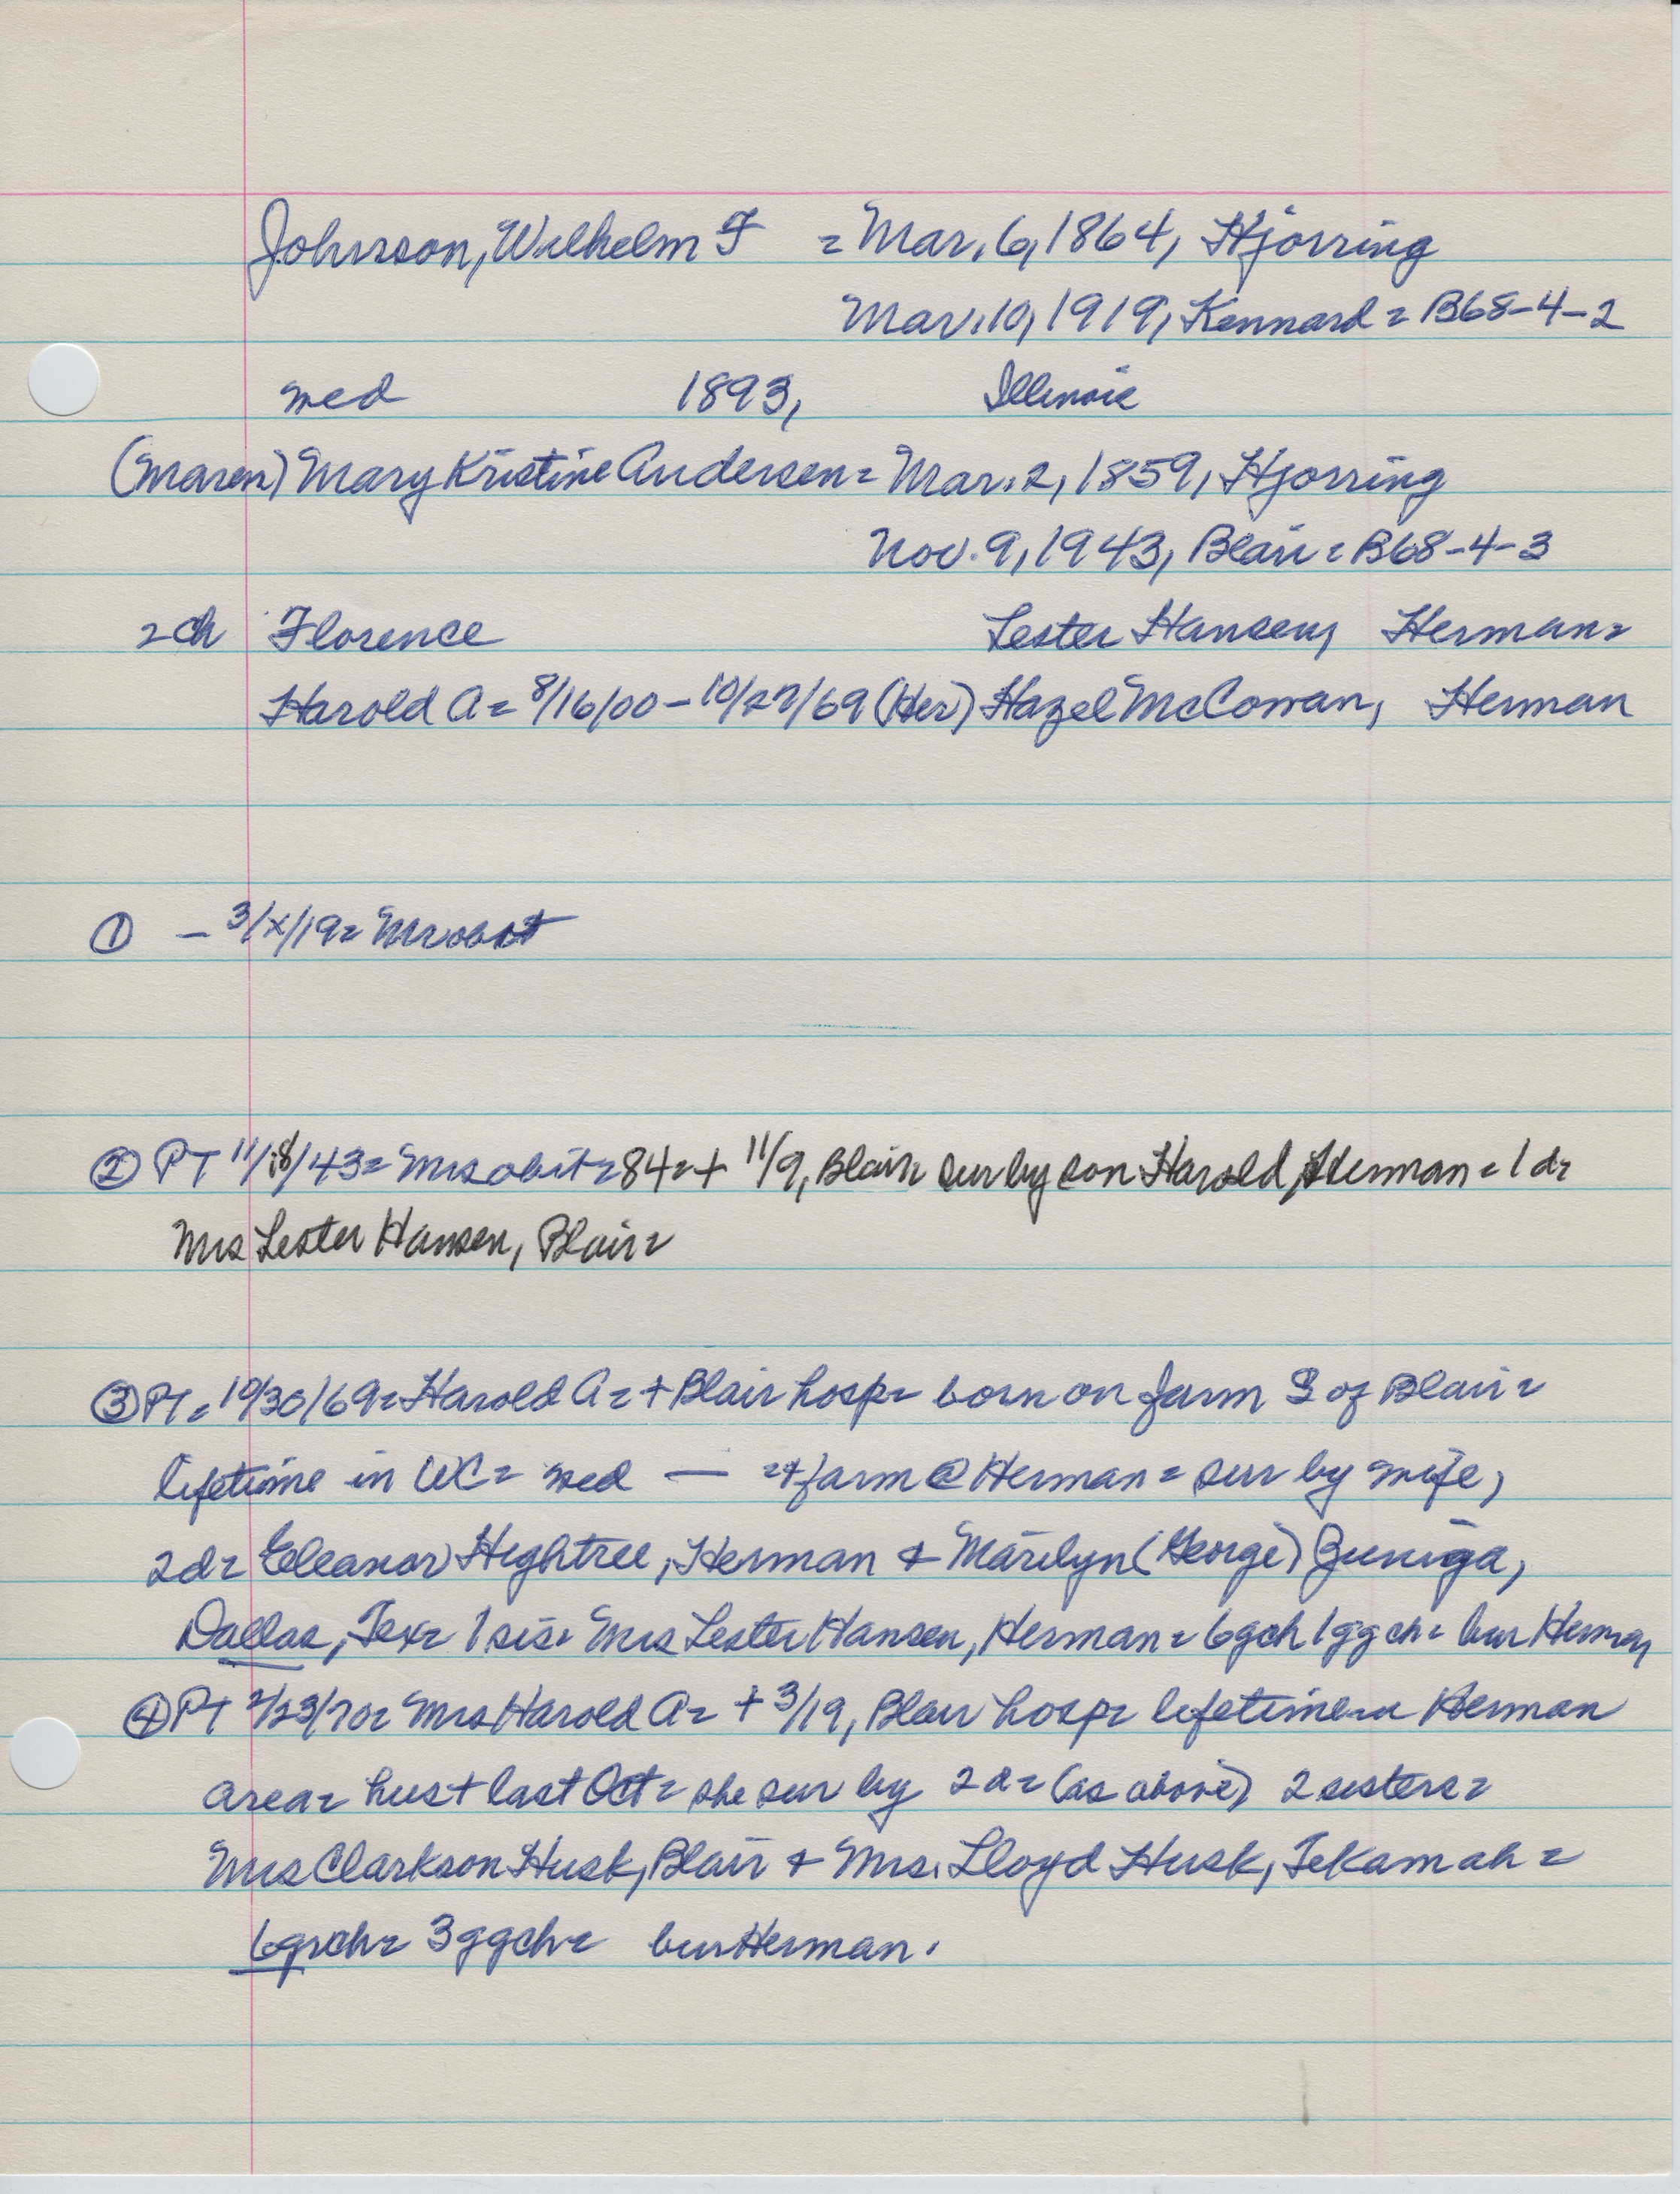 Johnson, Wilhelm F = Mar. 6, 1864, Hjorring
Mar. 10, 1919, Kennard = B68-4-2
med 1893, Illinois
(Maren) Mary Kristine Andersen = Mar. 2, 1859, Hjorring
Nov. 9, 1943, Blair = B68-4-3
2 ch Florence Lester Hansen, Herman =
Harold A = 8/16/00 - 10/27/69 (Her) Hazel McCowan, Herman
① - 3/x/19 = Mr obit
② PT 11/18/43 = Mrs obit = 84 = + 11/9, Blair sur by son Harold, Herman = 1 d =
Mrs Lester Hansen, Blair =
③ PT = 10/30/69 = Harold A = + Blair hosp = born on farm S of Blair =
lifetime in WC = med — = farm @ Herman = sur by wife,
2d = Eleanor Hightree, Herman & Marilyn (George) Zuniga,
Dallas, Tex = 1 sis = Mrs Lester Hansen, Herman = 6gch 1ggch = bur Herman
④ PT /23/70 = Mrs Harold A = + 3/19, Blair hosp = lifetime Herman
area = hus + last Oct = she sur by 2d = (as above) 2 sisters =
Mrs Clarkson Husk, Blair & Mrs. Lloyd Husk, Tekamah =
6grch = 3ggch = bur Herman.